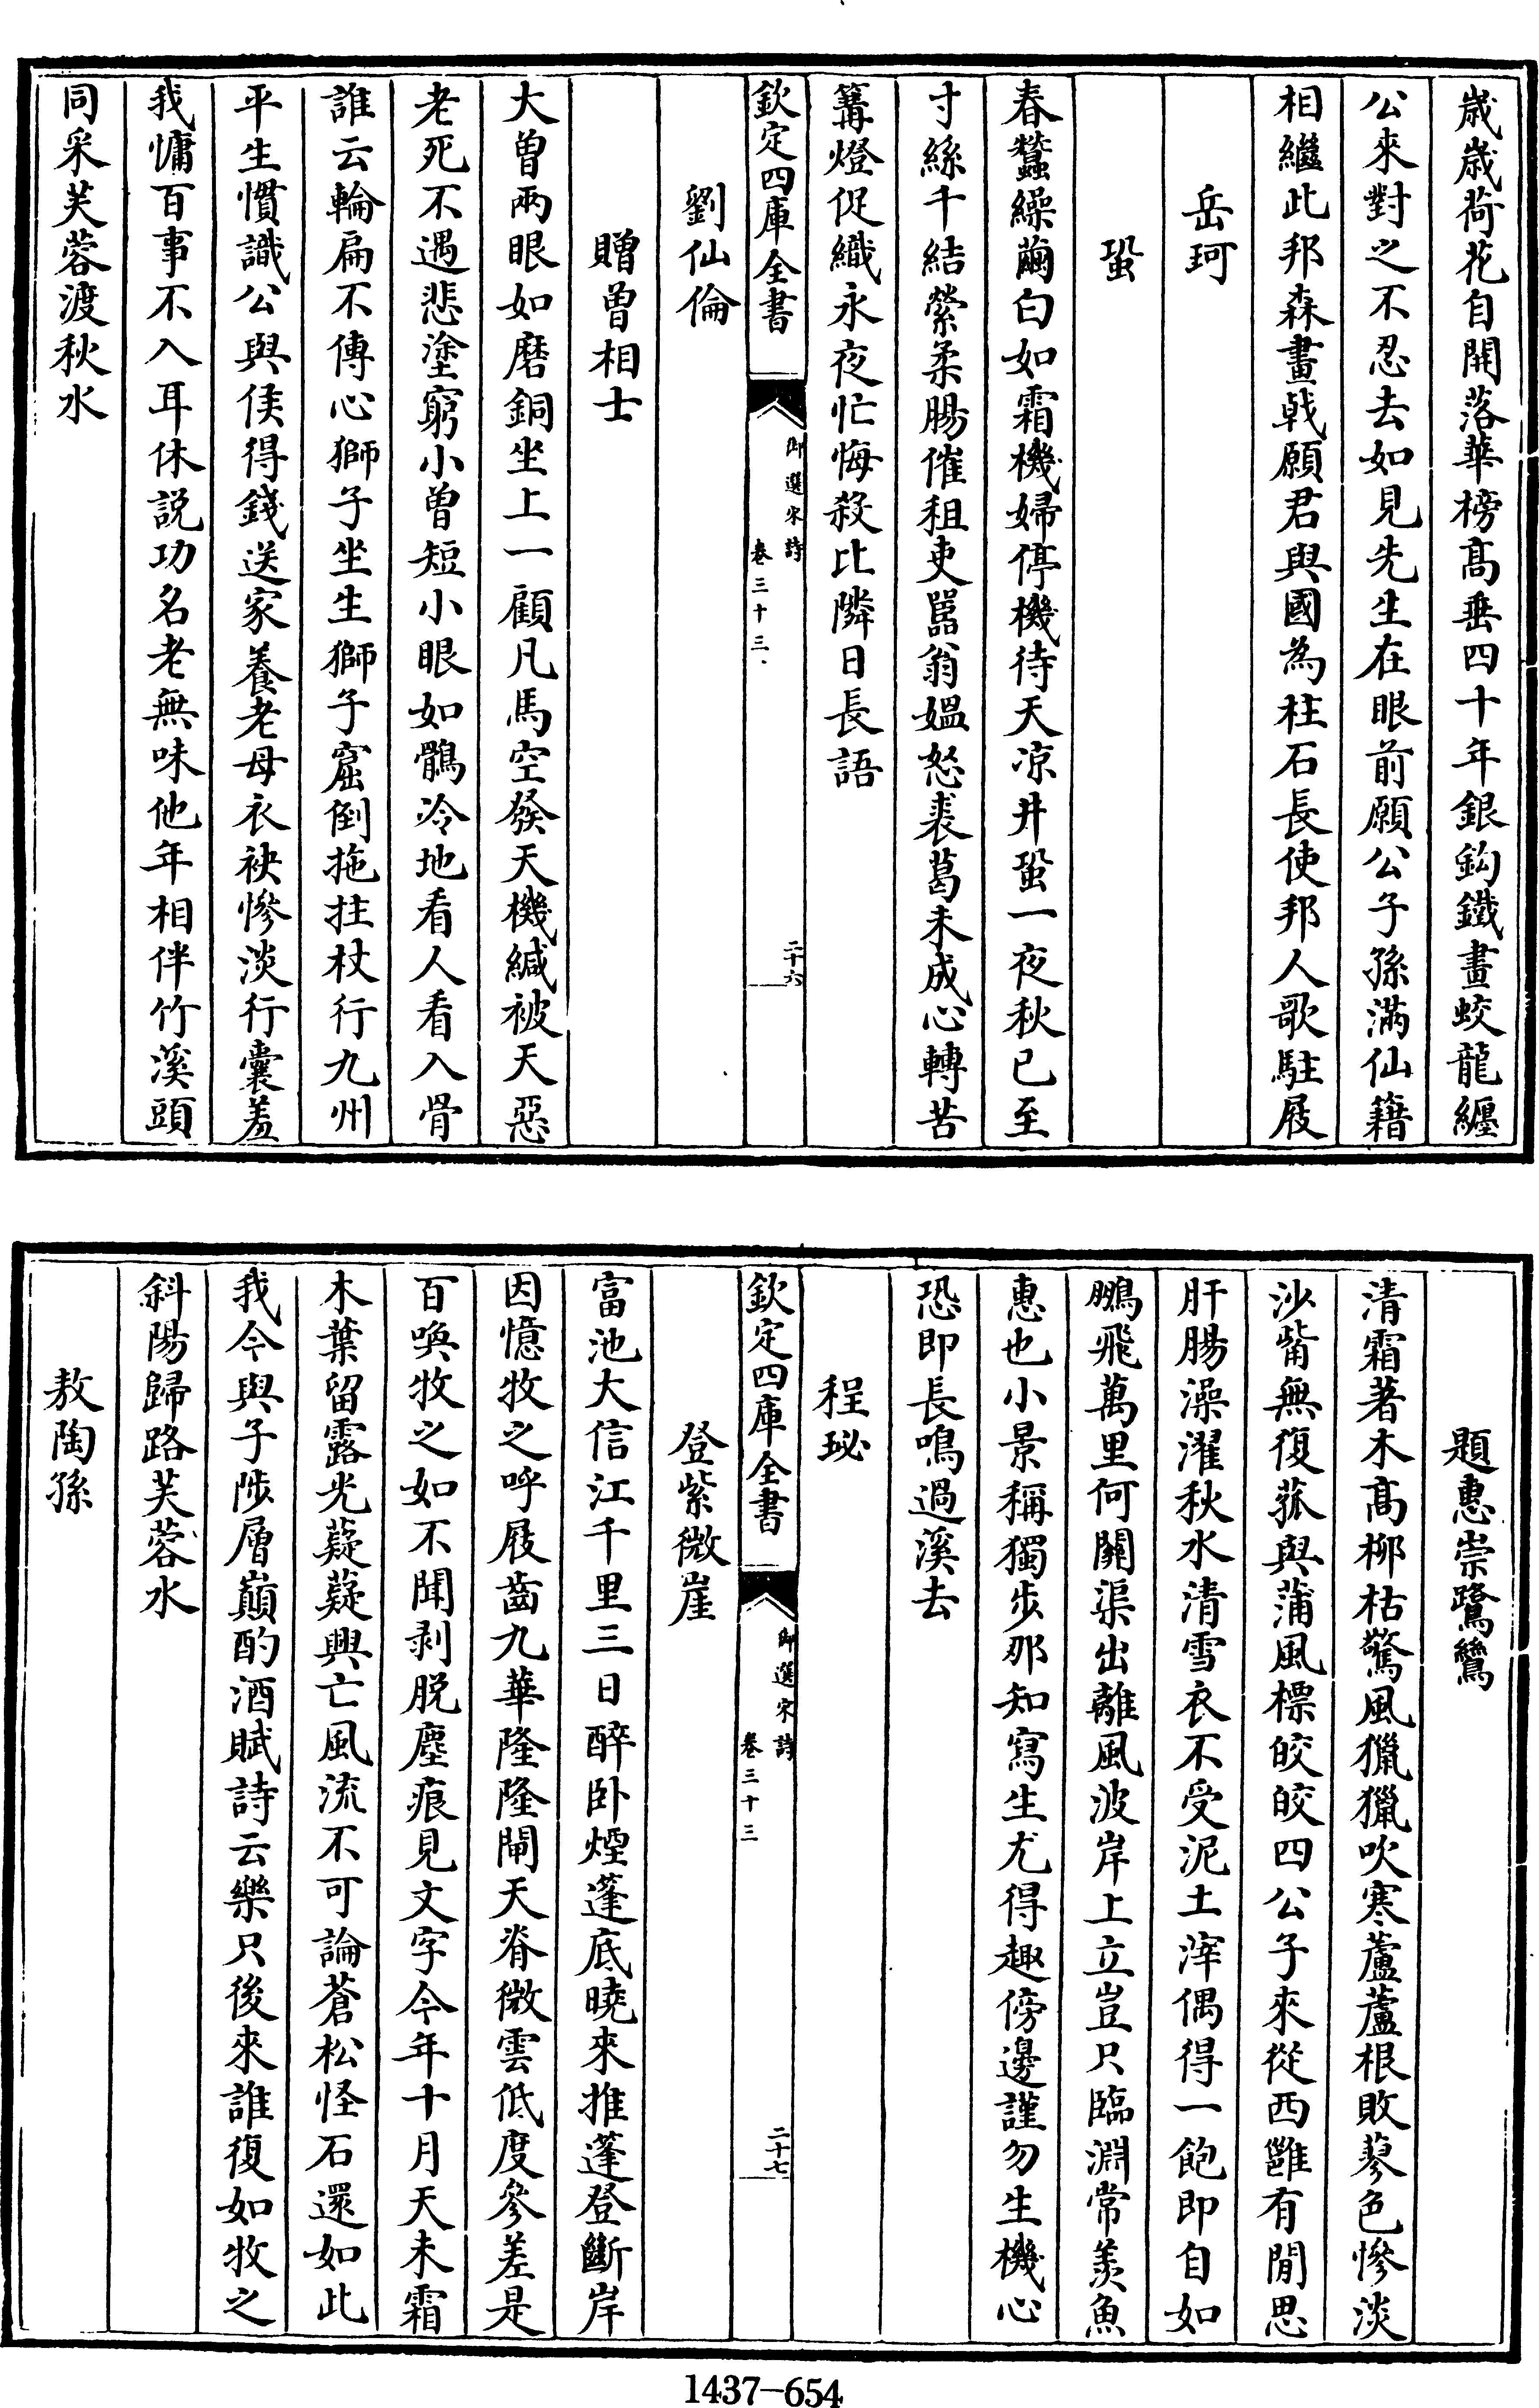 歲歲荷花自開落華榜髙垂四十年銀鈎鐵畫蛟龍纒
公來對之不忍去如見先生在眼前願公子孫滿仙籍
相繼此邦森畫戟願君與國為柱石長使邦人歌駐屐
岳珂
蛩
春蠶繰繭白如霜機婦停機待天凉井蛩一夜秋已至
寸絲千結縈柔腸催租吏囂翁媪怒裘葛未成心轉苦
篝燈促織永夜忙悔殺比隣日長語
欽定四庫全書
御選宋詩
卷三十三
二十六
劉仙倫
贈曾相士
大曽兩眼如磨銅坐上一顧凡馬空發天機緘被天惡
老死不遇悲塗窮小曽短小眼如鶻冷地看人看入骨
誰云輪扁不傳心獅子坐生獅子窟倒拖拄杖行九州
平生慣識公與侯得錢送家養老母衣袂慘淡行囊羞
我慵百事不入耳休説功名老無味他年相伴竹溪頭
同采芙蓉渡秋水
題惠崇鷺鷥
清霜著木髙柳枯驚風獵獵吹寒蘆蘆根敗蓼色慘淡
沙觜無復菰與蒲風標皎皎四公子來從西雝有閒思
肝腸澡濯秋水清雪衣不受泥土滓偶得一飽即自如
鵬飛萬里何關渠出離風波岸上立豈只臨淵常羨魚
惠也小景稱獨步那知寫生尤得趣傍邊謹勿生機心
恐即長鳴過溪去
程珌
欽定四庫全書
御選宋詩
卷三十三
二十七
登紫微崖
富池大信江千里三日醉卧煙蓬底曉來推蓬登斷岸
因憶牧之呼屐齒九華隆隆閘天脊微雲低度參差是
百喚牧之如不聞剥脱塵痕見文字今年十月天未霜
木葉留露光薿薿興亡風流不可論蒼松怪石還如此
我今與子陟層巔酌酒賦詩云樂只後來誰復如牧之
斜陽歸路芙蓉水
敖陶孫
1437-654